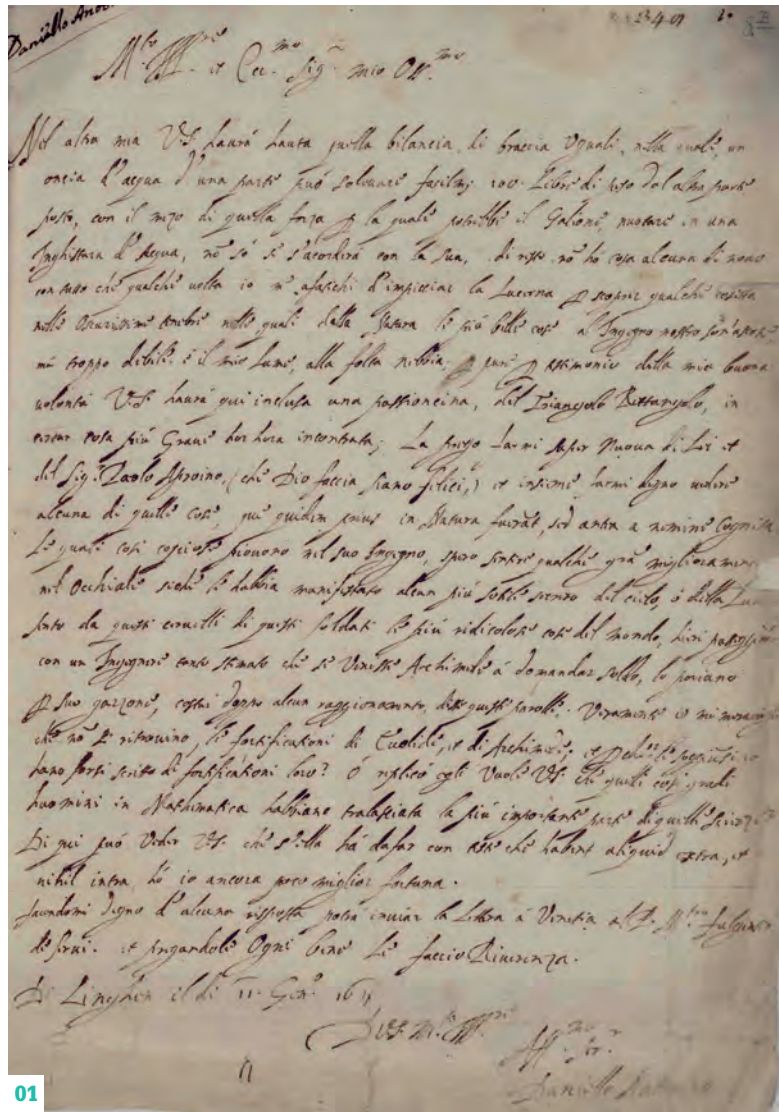 Daniello Anto
23.4.01
M.to Ill.re et Ecc.mo Sig.r mio Oss.mo
Nel altra mia V.S. haurà hauta quella bilancia, di braccia Uguali, nella quale, un
oncia d'acqua d'una parte può solevare facilm; 100. Libre di peso dal altra parte
posto, con il mezo di quella forza p la quale potrebbe il Galione, nuotare in una
Inghistara d'Acqua, nō sò se s'acorderà con la sua, di resto nō hò cosa alcuna di novo
con tutto che qualche volta io m'afatichi d'impicciar la Lucerna p scoprir qualche cosetta
nelle Oscurissime tenebre nelle quali dalla Natura le più belle cose al Ingegno nostro son'ascose,
mà troppo debile è il mio lume, alla folta nebbia; pure p testimonio della mia buona
volontà V.S. haurà qui inclusa una passioncina, del Triangolo Rettangolo, in
cercar cosa più Grave hor hora incontrata; La prego farmi saper Nuova di Lei et
del Sig.r Paolo Aproino, (che Dio faccia siano felici,) et insieme farmi degno vedere
alcuna di quelle cose, que quidem prius in Natura fuerāt, sed antea a nemine Cognita,
Le quali così copiose piovono nel suo Ingegno, spero sentire qualche grā migliorament
nel Occhiale sichè le habbia manifestato alcun più sotile secreto del cielo, ò della Luna
sento da questi cervelli di questi soldati le più ridicolose cose del mondo, hieri
con un Ingegnere tanto stimato che se Venisse Archimede à domandar soldo, lo poriano
p suo garzone, costui doppo alcun raggionamento, disse queste parolle. Veramente io mi
che nō se ritrovino, le fortificationi di Euclide, et di Archimede; et
hano forsi scritto di fortificationi loro? ò replicò egli Vuole V.S. che quelli così grādi
huomini in Mathematica habbiano tralasciata la più importante parte di quelle scienze
Di qui può Veder V.S. che s'ella hà dafar con teste che habent aliquid extra, et
nihil intra, hò io ancora poco miglior fortuna.
facendomi degno d'alcuna risposta potrà inviar la Lettra à Venetia al P. M.tro Fulgentio
de servi. et pregandole Ogni bene Le faccio Riverenza.
Di Linghen il di 11. Gen.o 16
Di V.S. M.to Ill.re
Aff.mo Ser.r
Daniello
01